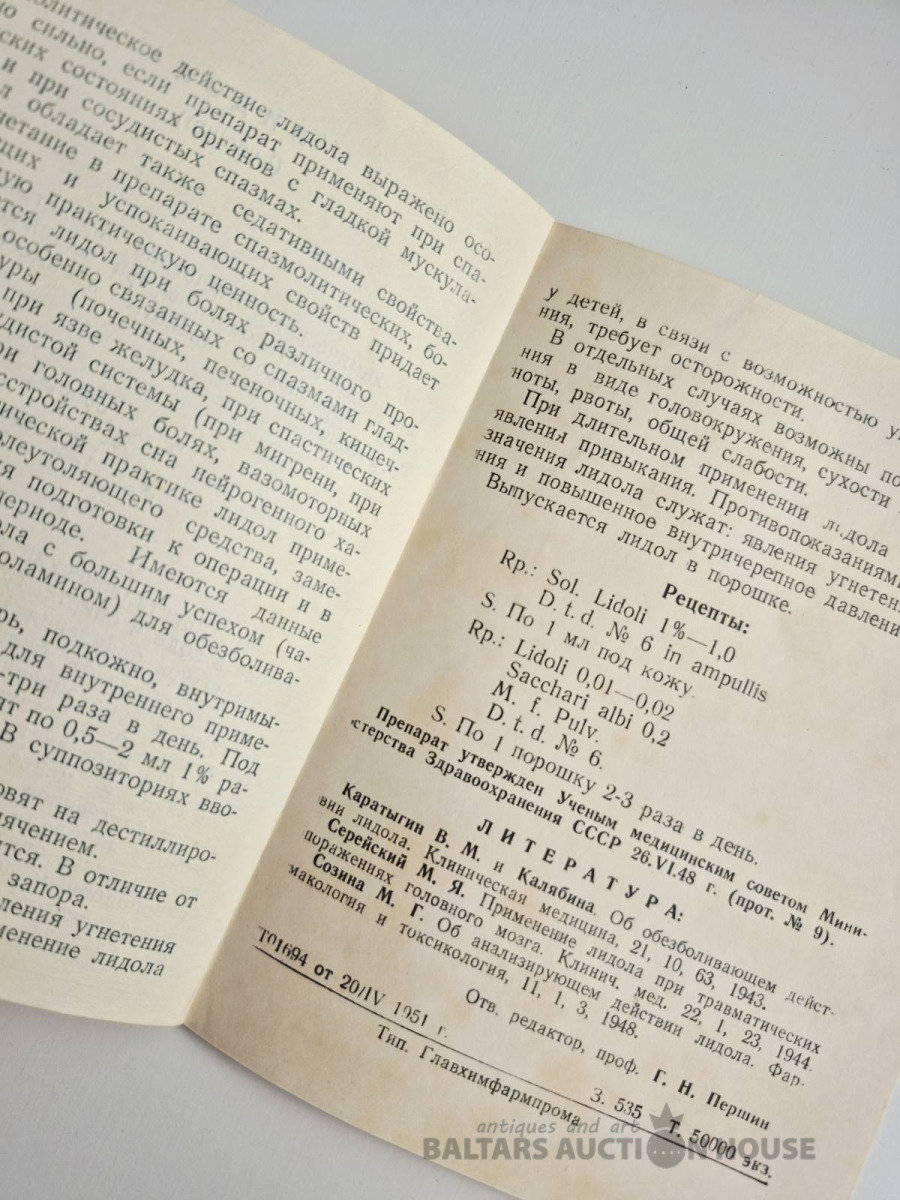 олитическое действие лидола выражено осо-
но сильно, если препарат применяют при спа-
ских состояниях органов с гладкой мускула-
и при сосудистых спазмах.
л обладает также седативными свойства-
четание в препарате спазмолитических, бо-
щих и успокаивающих свойств придает
ую практическую ценность.
тся лидол при болях различного про-
особенно связанных со спазмами глад-
уры (почечных, печеночных, кишеч-
при язве желудка, при спастических
удистой системы (при мигрени, при
ри головных болях, вазомоторных
сстройствах сна нейрогенного ха-
гической практике лидол приме-
олеутоляющего средства, заме-
я подготовки к операции и в
периоде. Имеются данные
ола с большим успехом (ча-
оламином) для обезболива-
рь, подкожно, внутримы-
для внутреннего приме-
-три раза в день. Под
ят по 0,5—2 мл 1% ра-
В суппозиториях вво-
овят на дестиллиро-
лячением.
ится. В отличие от
запора.
ления угнетения
именение лидола
у детей, в связи с возможностью уг
ния, требует осторожности.
В отдельных случаях возможны по
ния в виде головокружения, сухости
ноты, рвоты, общей слабости.
При длительном применении лидола
явления привыкания. Противопоказаниями
значения лидола служат: явления угнетен
ния и повышенное внутричерепное давлени
Выпускается лидол в порошке.
Рецепты:
Rp.: Sol. Lidoli 1%—1,0
D. t. d. № 6 in ampullis
S. По 1 мл под кожу.
Rp.: Lidoli 0,01—0,02
Sacchari albi 0,2
M. f. Pulv.
D. t. d. № 6.
S. По 1 порошку 2-3 раза в день.
Препарат утвержден Ученым медицинским советом Мини-
стерства Здравоохранения СССР 26.VI.48 г. (прот. № 9).
ЛИТЕРАТУРА:
Каратыгин В. М. и Калябина. Об обезболивающем дейст-
вии лидола. Клиническая медицина, 21, 10, 63, 1943.
Серейский М. Я. Применение лидола при травматических
поражениях головного мозга. Клинич. мед. 22, 1, 23, 1944.
Созина М. Г. Об анализирующем действии лидола. Фар-
макология и токсикология, 11, 1, 3, 1948.
Отв. редактор, проф. Г. Н. Першин
Т01694 от 20/IV 1951 г. З. 535 Т. 50000 экз.
Тип. Главхимфармпрома
antiques and art
BALTARS AUCTION HOUSE